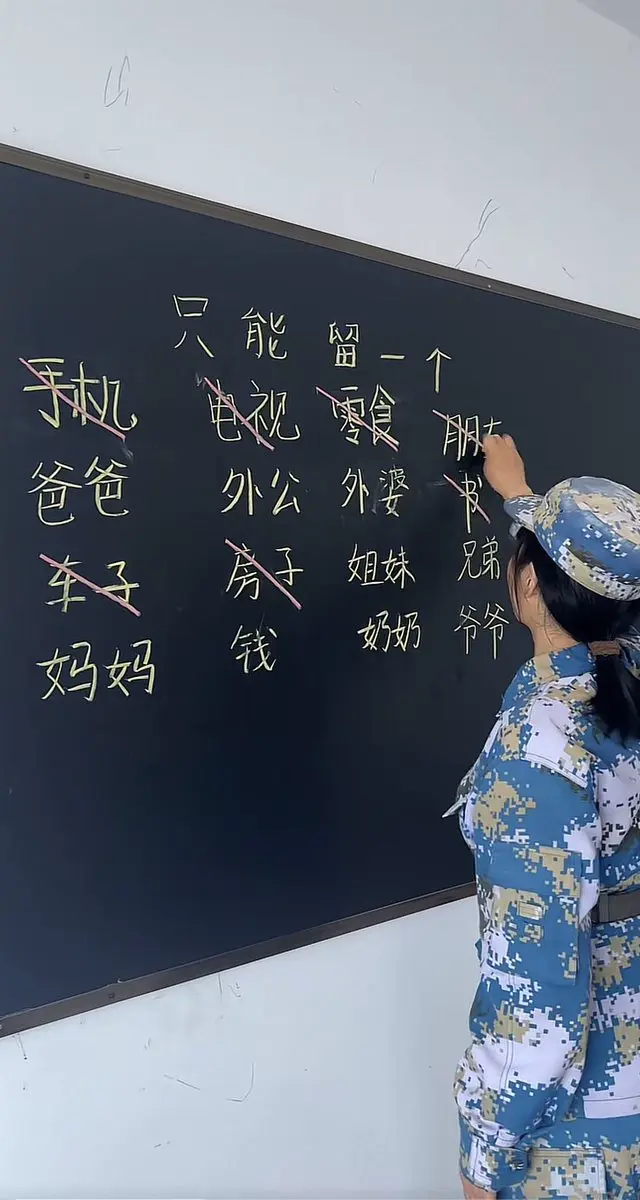 只能留一个
手机 电视 零食 朋友
爸爸 外公 外婆 书
车子 房子 姐妹 兄弟
妈妈 钱 奶奶 爷爷